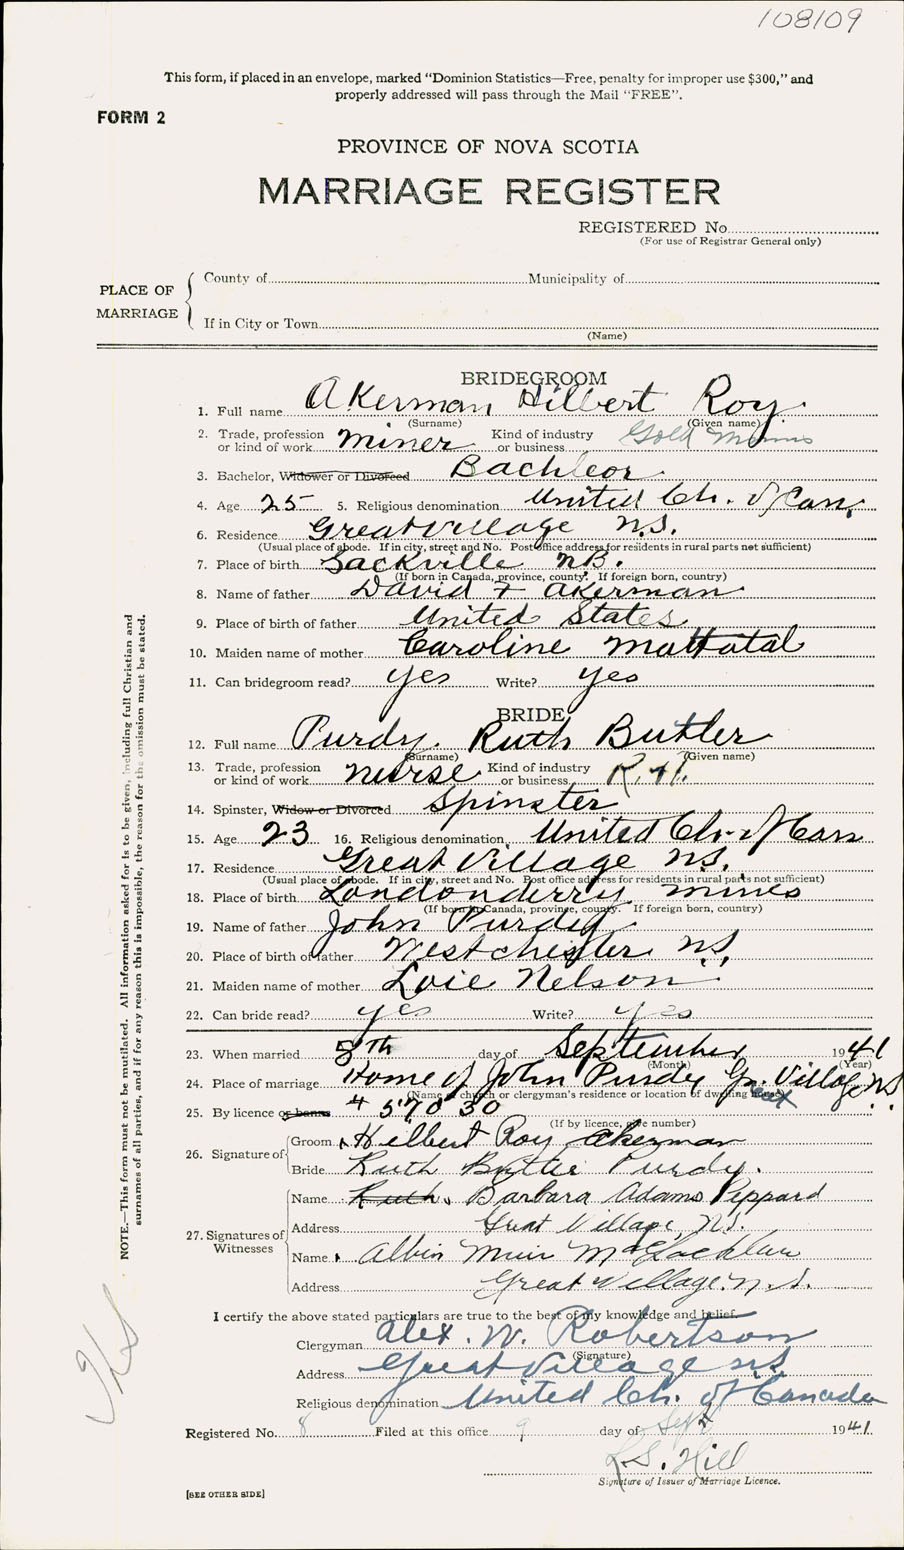 108109
This form, if placed in an envelope, marked “Dominion Statistics—Free, penalty for improper use $300,” and
properly addressed will pass through the Mail “FREE”.
FORM 2
PROVINCE OF NOVA SCOTIA
MARRIAGE REGISTER
REGISTERED No.
(For use of Registrar General only)
PLACE OF MARRIAGE
County of Municipality of
If in City or Town
(Name)
BRIDEGROOM
1. Full name Akerman Hilbert Roy
(Surname) (Given name)
2. Trade, profession or kind of work miner Kind of industry or business Gold Mines
3. Bachelor, Widower or Divorced Bachleor
4. Age 25 5. Religious denomination United Ch. of Can.
6. Residence Great Village N.S.
(Usual place of abode. If in city, street and No. Post office address for residents in rural parts not sufficient)
7. Place of birth Sackville NB.
(If born in Canada, province, county. If foreign born, country)
8. Name of father David F Akerman
9. Place of birth of father United States
10. Maiden name of mother Caroline Mattatal
11. Can bridegroom read? yes Write? yes
BRIDE
12. Full name Purdy Ruth Butler
(Surname) (Given name)
13. Trade, profession or kind of work nurse Kind of industry or business R.N.
14. Spinster, Widow or Divorced Spinster
15. Age 23 16. Religious denomination United Ch. of Can
17. Residence Great Village N.S.
(Usual place of abode. If in city, street and No. Post office address for residents in rural parts not sufficient)
18. Place of birth Londonderry mines
(If born in Canada, province, county. If foreign born, country)
19. Name of father John Purdy
20. Place of birth of father Westchester N.S.
21. Maiden name of mother Loie Nelson
22. Can bride read? yes Write? yes
23. When married 5th day of September 1941
(Month) (Year)
24. Place of marriage Home of John Purdy Gr. Village N.S.
(Name of church or clergyman's residence or location of dwelling house) Great
25. By licence or banns # 57030
(If by licence, give number)
26. Signature of
Groom Hilbert Roy Akerman
Bride Ruth Butler Purdy.
27. Signatures of Witnesses
Name Ruth. Barbara Adams Peppard
Address Great Village, N.S.
Name Albin Muir McLachlan
Address Great Village. N.S.
I certify the above stated particulars are true to the best of my knowledge and belief.
Clergyman Alex. W. Robertson
(Signature)
Address Great Village N.S.
Religious denomination United Ch. of Canada
Registered No. 8 Filed at this office 9 day of Sept 1941.
L.S. Hill
Signature of Issuer of Marriage Licence.
[SEE OTHER SIDE]
NOTE.—This form must not be mutilated. All information asked for is to be given, including full Christian and
surnames of all parties, and if for any reason this is impossible, the reason for the omission must be stated.